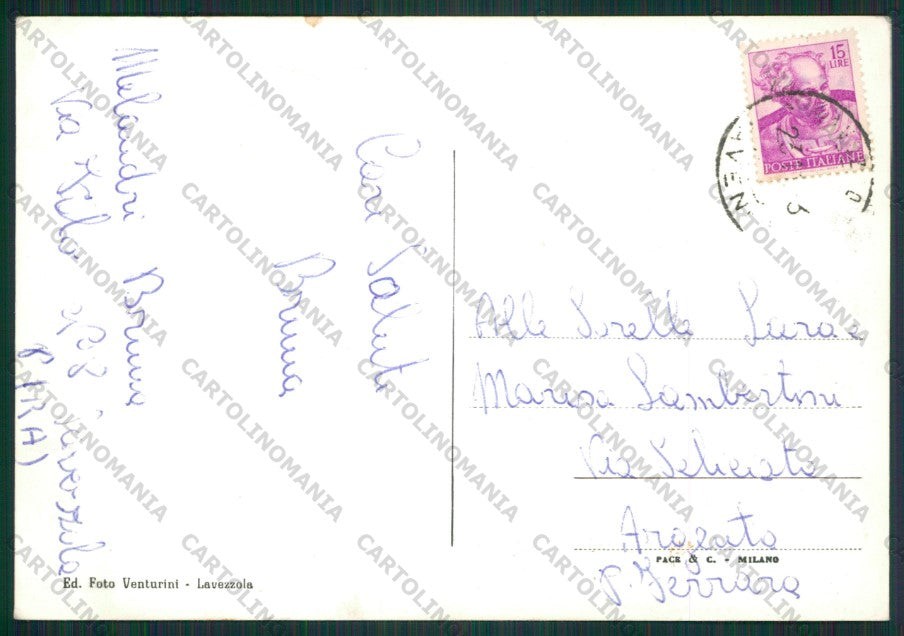 Melandri Bruna
Via
Lavezzola
(RA)
Cari Saluti
Bruna
15
LIRE
POSTE ITALIANE
Alle Sorelle Laura e
Marisa Lambertini
Via
Argenta
P. Ferrara
PACE & C. - MILANO
Ed. Foto Venturini - Lavezzola
CARTOLINOMANIA